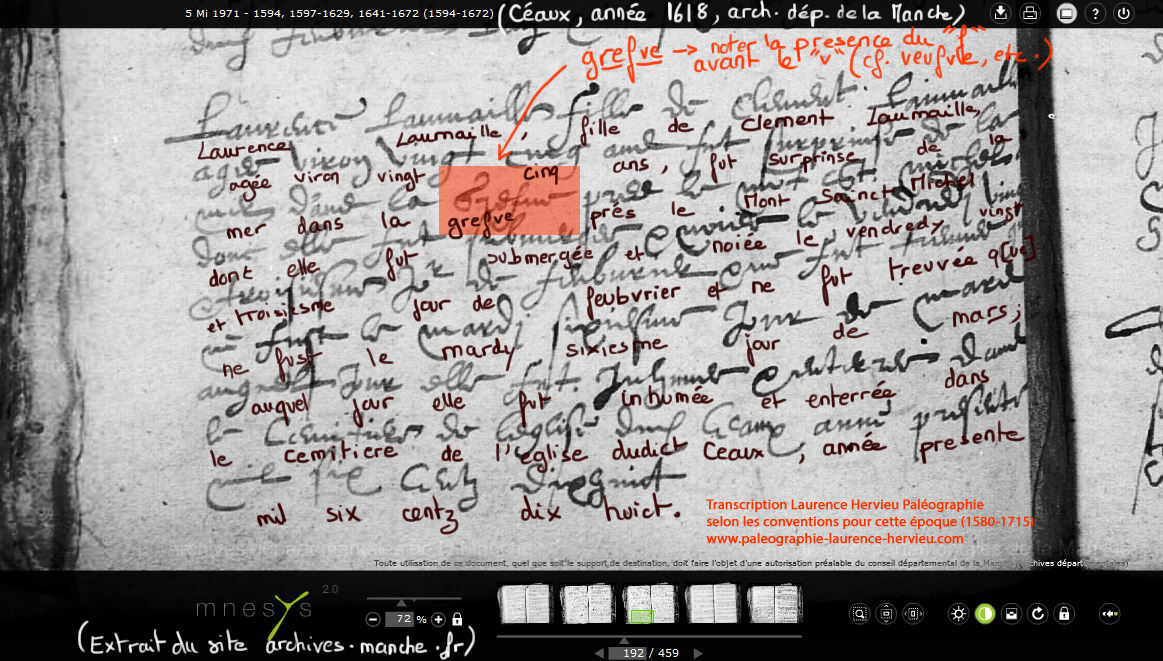 5 Mi 1971 - 1594, 1597-1629, 1641-1672 (1594-1672) (Céaux, année 1618, arch. dép. de la Manche)
grefve → noter la présence du "f"
avant le "v" (cf. veufve, etc.)
Laurence Laumaille, fille de Clement Laumaille,
agée viron vingt cinq ans, fut surprinse de la
mer dans la grefve près le Mont Sainct Michel
dont elle fut submergée et noiée le vendredy vingt
et troisiesme jour de feubvrier et ne fut treuvée q[ue]
ne fust le mardy sixiesme jour de mars;
auquel jour elle fut inhumée et enterrée dans
le cemitiere de l'église dudict Ceaux, année presente
mil six centz dix huict.
Transcription Laurence Hervieu Paléographie
selon les conventions pour cette époque (1580-1715)
www.paleographie-laurence-hervieu.com
Toute utilisation de ce document, quel que soit le support de destination, doit faire l'objet d'une autorisation préalable du conseil départemental de la Manche (archives départementales)
mnesys 2.0
72 %
(Extrait du site archives.manche.fr)
192 / 459